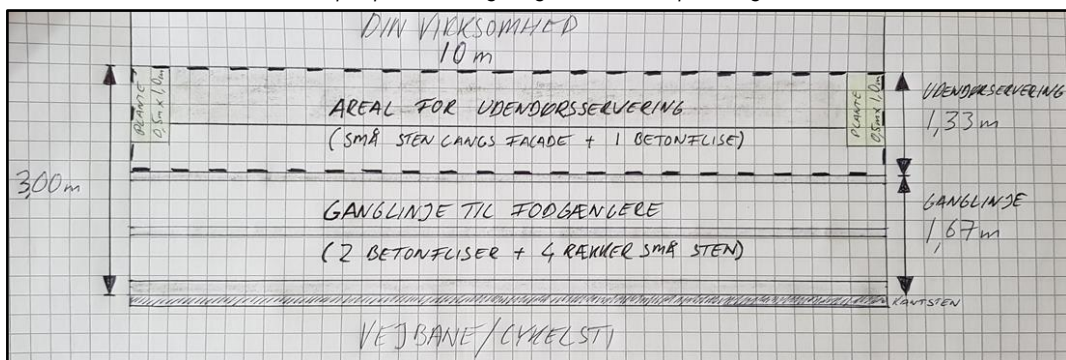 DIN VIRKSOMHED
10 m
PLANTE
0,5m x 1,0m
AREAL FOR UDENDØRSSERVERING
(SMÅ STEN LANGS FACADE + 1 BETONFLISE)
PLANTE
0,5m x 1,0m
UDENDØRSERVERING
1,33 m
3,00 m
GANGLINJE TIL FODGÆNGERE
(2 BETONFLISER + 4 RÆKKER SMÅ STEN)
GANGLINJE
1,67 m
KANTSTEN
VEJBANE/CYKELSTI